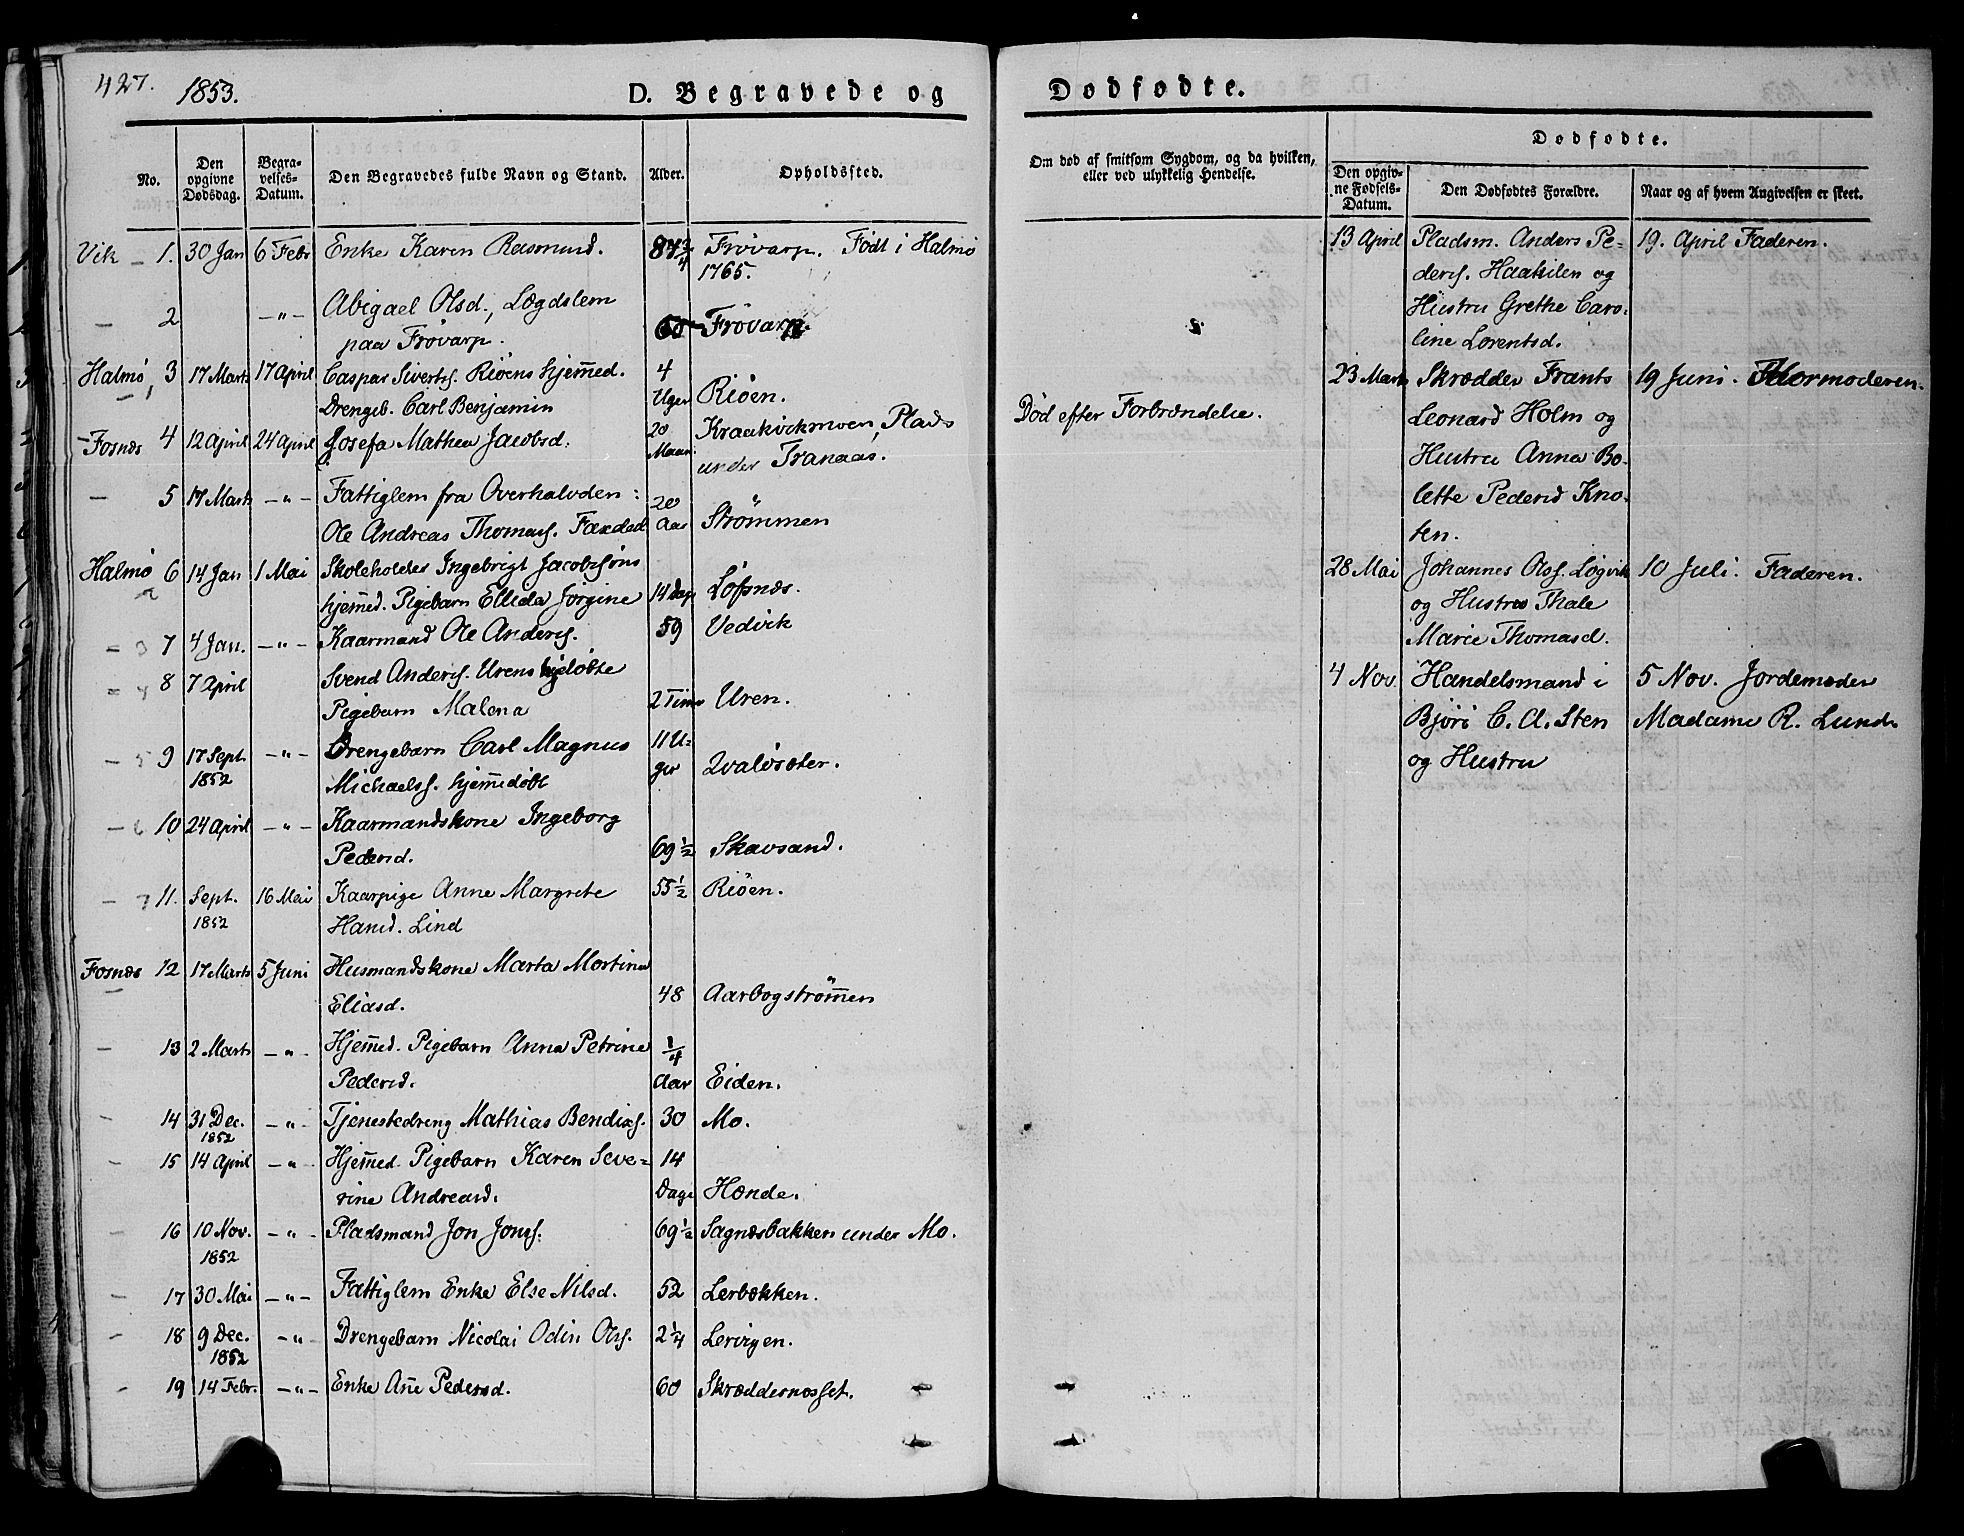 427. 1853. D. Begravede og
No. Den opgivne Dødsdag. Begravelses-Datum. Den Begravedes fulde Navn og Stand. Alder. Opholdssted.
Vik – 1. 30 Jan 6 Febr Enke Karen Rasmusd. 87 3/4 Frövarp. Födt i Halmö
1765.
– 2 –"– Abigael Olsd., Lægdslem
paa Frövarp. 60 Frövarp.
Halmö, 3 17 Marts 17 April Caspar Siverts. Riöens hjemmed. 4
Drengeb. Carl Benjamin Uger Riöen.
Fosnæs 4 12 April 24 April Josefa Mathea Jacobsd. 20 Kraakvikmoen, Plads
Maan. under Tranaas.
– 5 17 Marts –"– Fattiglem fra Overhalvden: 20
Ole Andreas Thomas. Faxdal Aar Strömmen
Halmö 6 14 Jan 1 Mai Skoleholder Ingebrigt Jacobsöns
hjemmed. Pigebarn Ellida Jörgine 14 Dage Löfsnæs.
– 3 7 4 Jan. –"– Kaarmand Ole Anders. 59 Vedvik
– 4 8 7 April Svend Anders. Urens hjedöbte
Pigebarn Malena 2 Timer Uren.
– 5 9 17 Sept. –"– Drengebarn Carl Magnus 11 U-
1852 Michaels. hjemmedöbt ger Qvalösæter.
– 6 10 24 April –"– Kaarmandskone Ingeborg
Pedersd. 69 1/2 Skavsand.
– 7 11. Sept. 16 Mai Kaarpige Anne Margrete 55 1/2 Riöen.
1852 Hansd. Lind
Fosnæs 12 17 Marts 5 Juni Husmandskone Marta Mortina
Eliasd. 48 Aarbogströmmen
– 13 2 Marts –"– Hjemmed. Pigebarn Anna Petrine 1/4
Pedersd. Aar Eiden.
– 14 31 Dec. –"– Tjenestedreng Mathias Bendixs. 30 Mo.
1852
– 15 14 April –"– Hjemmed. Pigebarn Karen Seve- 14
rine Andreasd. Dage Hænde.
– 16 10 Nov. –"– Pladsmand Jon Jons. 69 1/2 Sagnæsbakken under Mo.
1852
– 17 30 Mai –"– Fattiglem Enke Else Nilsd. 52 Lerbækken.
– 18 9 Dec. –"– Drengebarn Nicolai Odin Ols. 2 1/4 Lervigen.
1852
– 19 14 Febr. –"– Enke Ane Pedersd. 60 Skræddernesset.
Dødfødte.
Om død af smitsom Sygdom, og da hvilken,
eller ved ulykkelig Hendelse.
Død efter Forbrændelse.
Dødfødte.
Den opgivne Fødsels-Datum. Den Dødfødtes Forældre. Naar og af hvem Angivelsen er skeet.
13 April Pladsm. Anders Pe- 19. April Faderen.
ders. Haakilen og
Hustru Grethe Caro-
line Lorentsd.
23 Marts Skrædder Frants 19 Juni. Mormoderen.
Leonard Holm og
Hustru Anna Bo-
lette Pedersd Kno-
ten.
28 Mai Johannes Ols. Lögvik 10 Juli. Faderen.
og Hustru Thale
Marie Thomasd.
4 Nov. Handelsmand i 5 Nov. Jordemoder
Björö C. A. Sten Madame R. Lund.
og Hustru